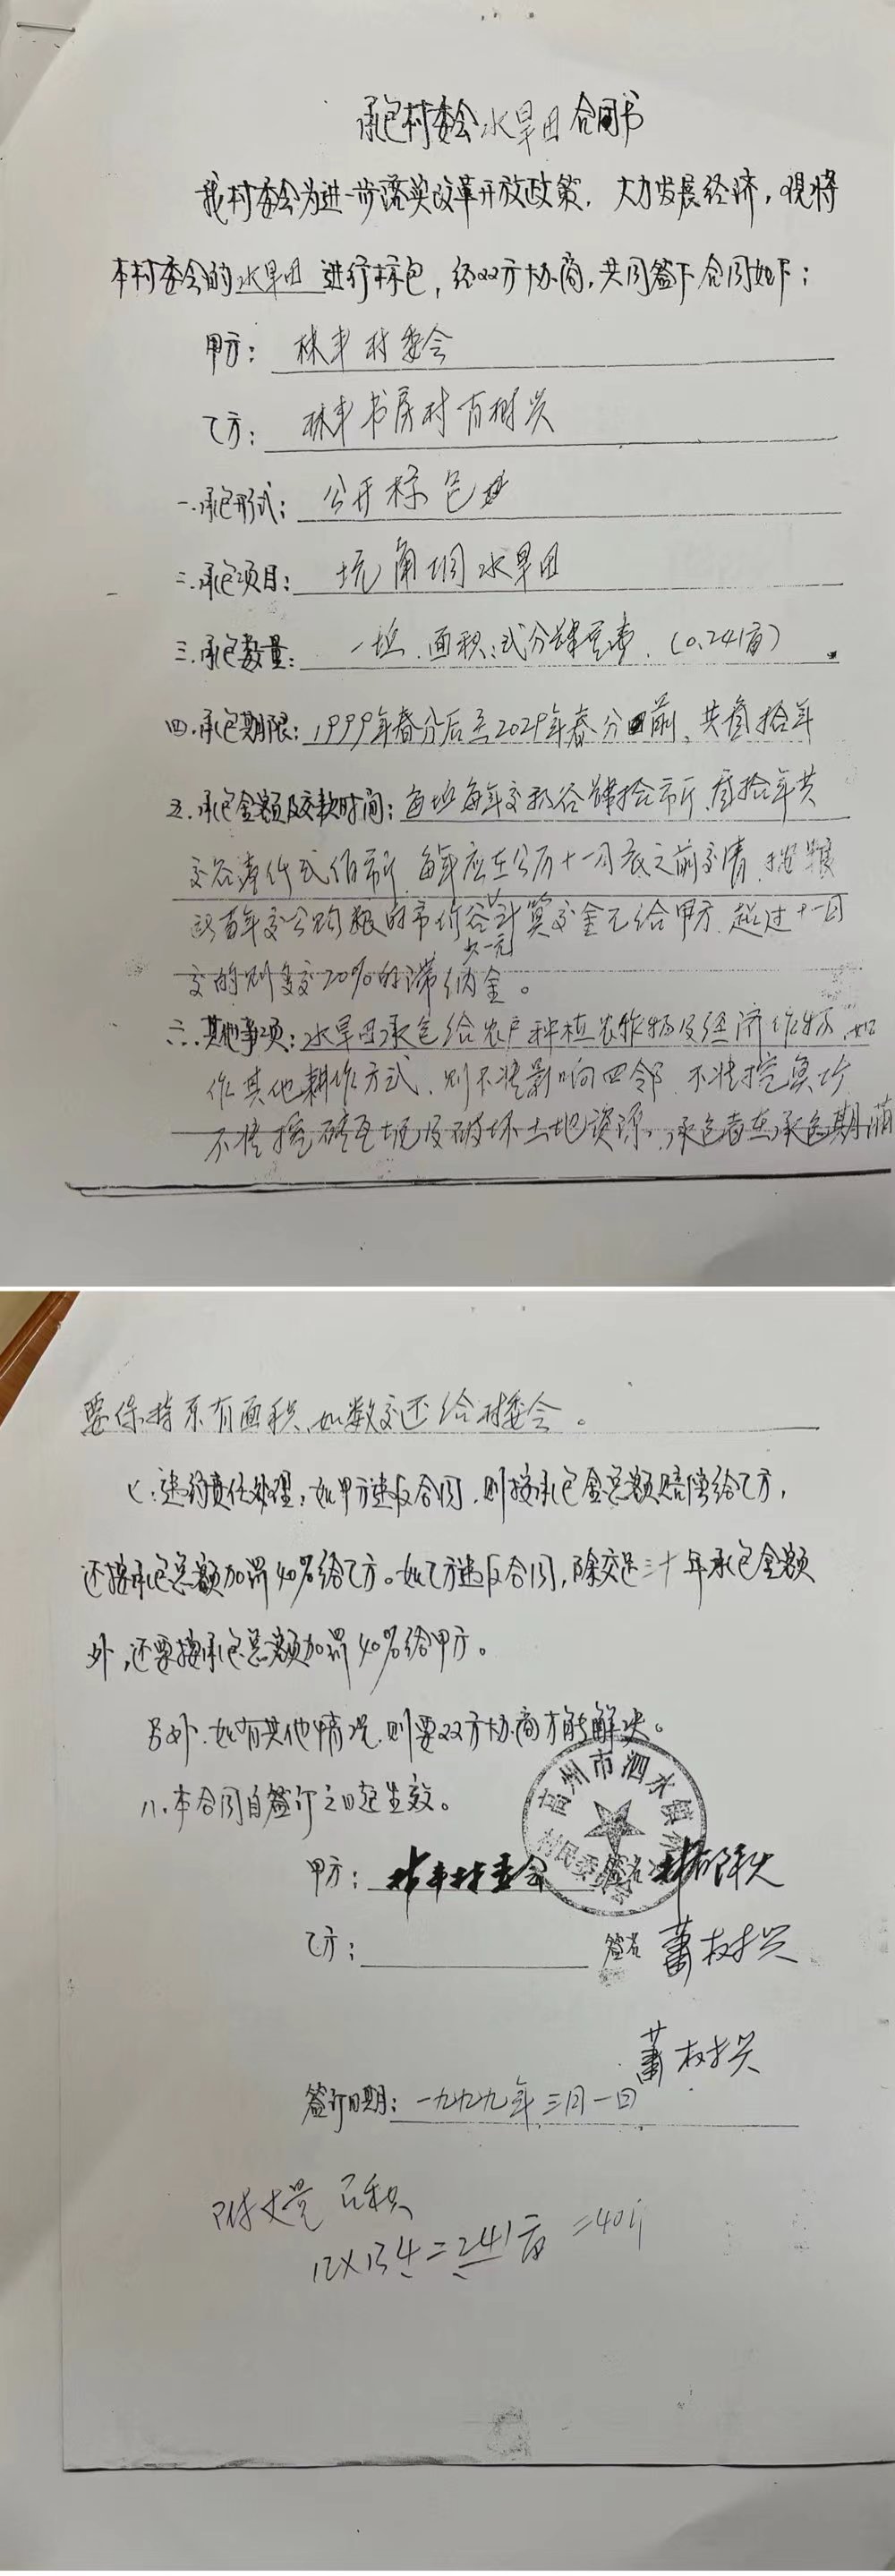 承包村委会水旱田合同书
我村委会为进一步落实改革开放政策，大力发展经济，现将
本村委会的水旱田进行标包，经双方协商，共同签下合同如下：
甲方：林丰村委会
乙方：林丰书房村肖树兴
一.承包形式：公开标包
二.承包项目：坑角垌水旱田
三.承包数量：一坵.面积：弍分肆厘壹.（0.241亩）
四.承包期限：1999年春分后至2029年春分前，共叁拾年
五.承包金额及交款时间：每坵每年交稻谷肆拾市斤，叁拾年共
交谷壹仟弍佰市斤，每年应在公历十一月底之前交清，按粮
所当年交公购粮的市价谷计算交金元给甲方，超过十一月
欠一元
交的则多交20%的滞纳金。
六.其他事项：水旱田承包给农户种植农作物及经济作物，如
作其他耕作方式，则不准影响四邻，不准挖鱼坎
不准搞砖瓦场及破坏土地资源，承包者在承包期满
要保持原有面积，如数交还给村委会。
七：违约责任处理：如甲方违反合同，则按承包金总额赔偿给乙方，
还按承包总额加罚40%给乙方。如乙方违反合同，除交足三十年承包金额
外，还要按承包总额加罚40%给甲方。
另外.如有其他情况，则要双方协商才能解决。
八.本合同自签订之日起生效。
高州市泗水镇
村民委员会
甲方：林丰村委会 签名
乙方： 签名 萧树兴
萧树兴
签订日期：一九九九年三月一日
附丈量面积
12×134=241亩=40斤